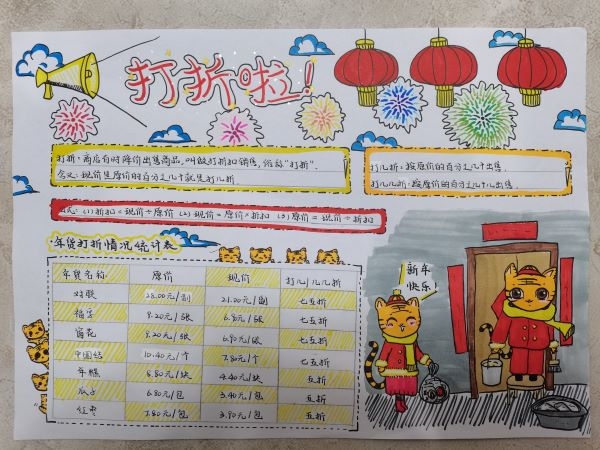 打折啦!
打折:商店有时降价出售商品,叫做打折扣销售,俗称"打折".
含义:现价是原价的百分之几十就是打几折.
打几折:按原价的百分之几十出售.
打几几折:按原价的百分之几十几出售.
公式:(1)折扣=现价÷原价 (2)现价=原价×折扣 (3)原价=现价÷折扣
年货打折情况统计表
年货名称 原价 现价 打几/几几折
对联 28.00元/副 21.00元/副 七五折
福字 9.20元/张 6.90元/张 七五折
窗花 9.20元/张 6.90元/张 七五折
中国结 10.40元/个 7.80元/个 七五折
年糕 8.80元/块 4.40元/块 五折
瓜子 6.80元/包 3.40元/包 五折
红枣 7.80元/包 3.90元/包 五折
新年
快乐!